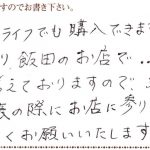 すのでお書き下さい。
ライフでも購入できま
り、飯田のお店で...
えておりますので、
の際にお店に参り
くお願いいたします